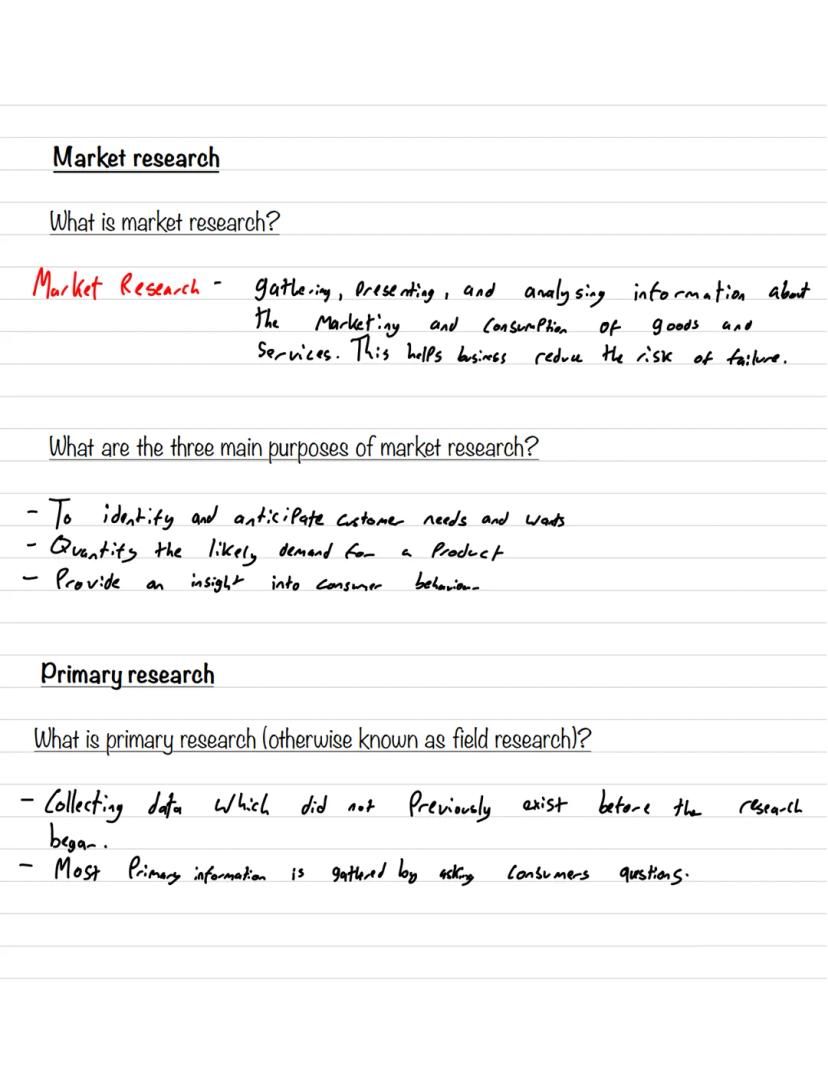 Market research
What is market research?
Market Research - gathering, Presenting, and analysing information about
the Marketing and Consumption of goods and
Services. This helps business reduce the risk of failure.
What are the three main purposes of market research?
- To identify and anticipate customer needs and wants
- Quantify the likely demand for a Product
- Provide an insight into consumer behaviour
Primary research
What is primary research (otherwise known as field research)?
- Collecting data which did not Previously exist before the research
began.
- Most Primary information is gathered by asking Consumers questions.